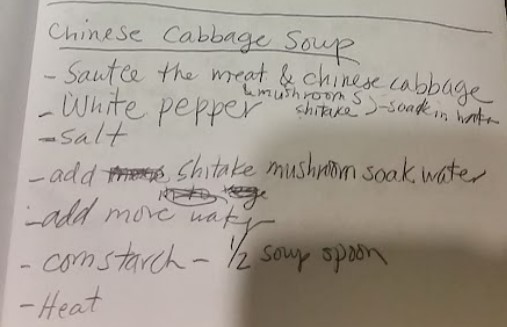 Chinese Cabbage Soup
- Sautee the meat & chinese cabbage
& mushrooms
- White pepper shitake )-soak in water
- salt
- add shitake mushroom soak water
- add more water
- cornstarch - 1/2 soup spoon
- Heat